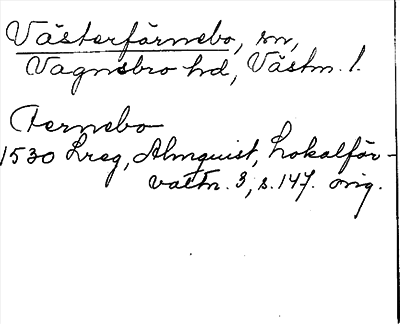 Västerfärnebo, sn,
Vagnsbro hd, Västm. l.
Fernebo
1530 Lreg, Almquist, Lokalför-
valtn. 3, s. 147. orig.